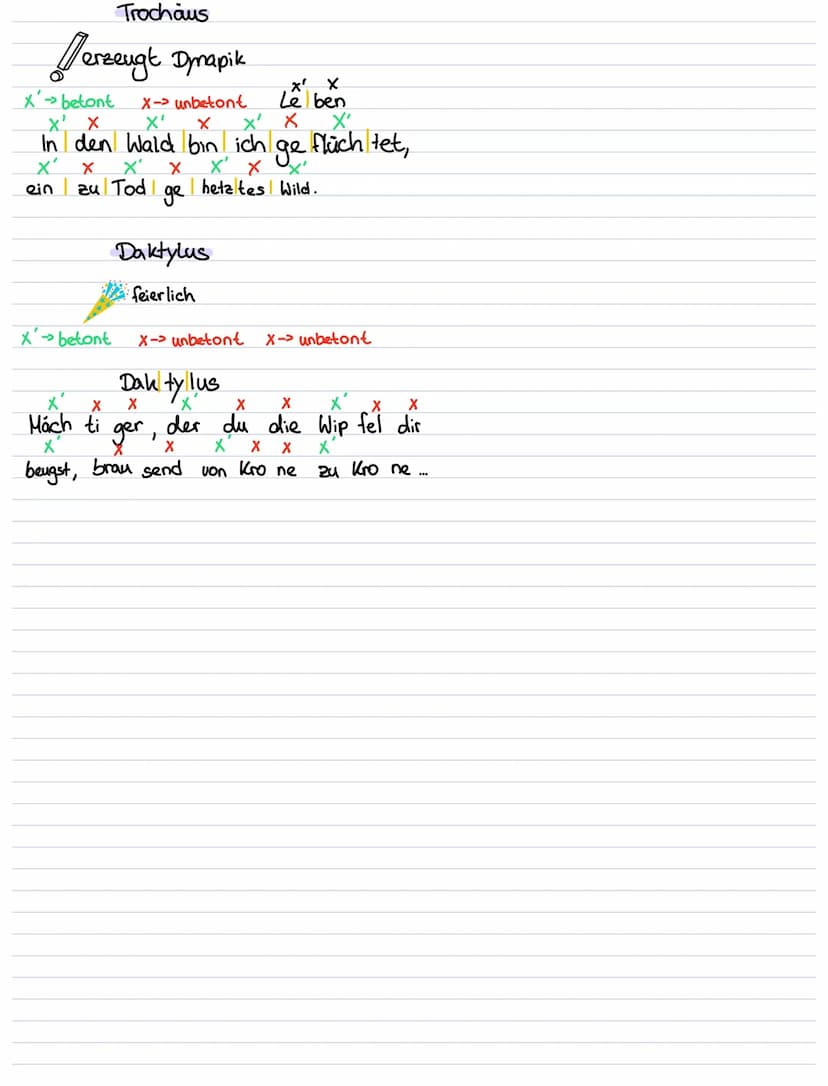 Trochäus
erzeugt Dynapik
x'-> betont x-> unbetont Le|ben
x' x
x' x x' x x' x x'
In| den| Wald |bin| ich| ge|flüch|tet,
x' x x' x x' x x'
ein | zu| Tod | ge | hetz|tes| Wild.
Daktylus
feierlich
x'-> betont x-> unbetont x-> unbetont
Dak|ty|lus
x' x x x' x x x' x x
Mäch ti ger, der du die Wip fel dir
x' x x x' x x x'
beugst, brau send von Kro ne zu Kro ne ...